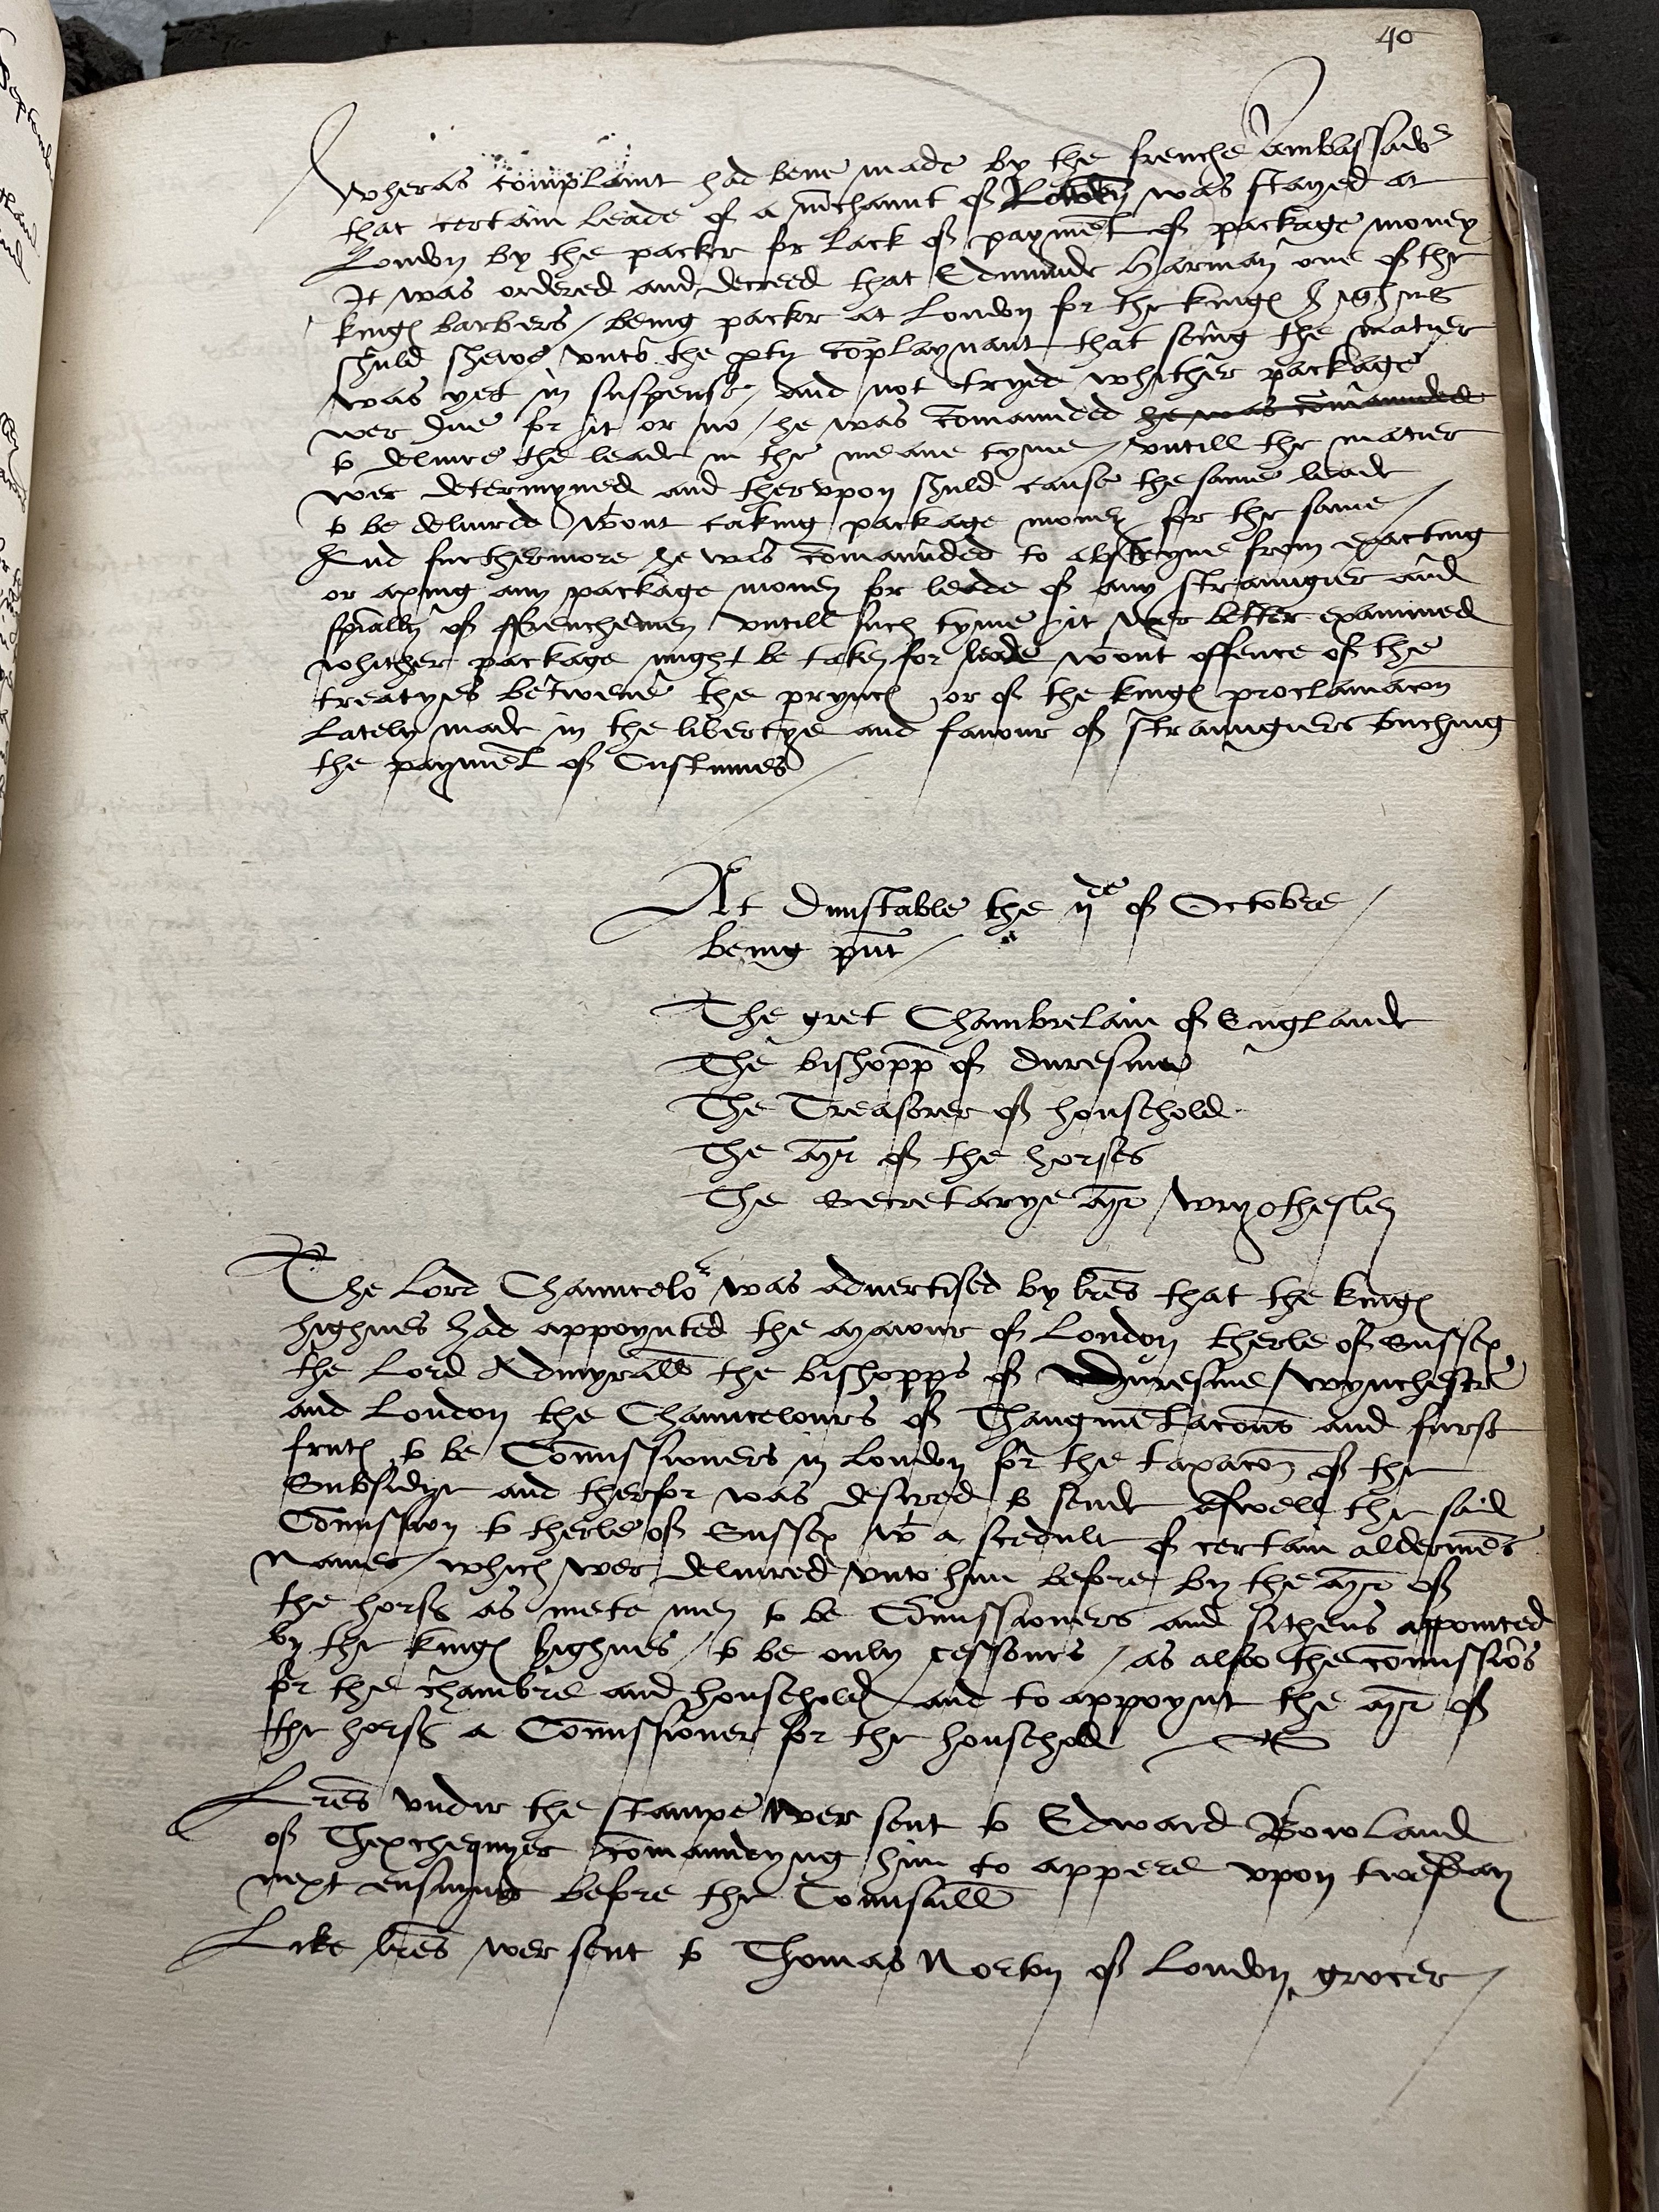 40
Wheras complaint had bene made by the frenche ambassado
that certain leade of a mchaunt of was stayed at
London by the packer for lack of payment of package money
It was ordered and decreed that Edmunde Harman one of the
kings barbers / being packer at London for the kings highnes
shuld shewe unto the pty coplaynant that seing the matier
was yet in suspense, and not tryed whither package
wer due for it or no / he was comaunded he was comaunded
to delivre the leade in the meane tyme / untill the matier
wer determyned and therupon shuld cause the same leade
to be delivred wout taking package money for the same /
And furthermore he was comaunded to absteyne from exacting
or axing any package money for leade of any straungier and
spially of ffrenchemen untill such tyme it wer better examined
whither package might be taken for leade wout offence of the
treatyes betwene the prynces or of the kings proclamacon
lately made in the libertye and favour of straungiers touching
the payment of Custumes /
At Dunstable the ijde of Octobre /
being pnt /
The gret Chambrelain of Englande
The bishopp of Duresme
The Treasorer of houshold
The Mr of the horses
The Secretarye Mr Wryothesley
The Lord Chauncelor was advertised by lres that the kings
highnes had appoynted the Mayour of London therle of Sussex
the Lord Admyrall the bishopps of Duresme / Wynchestre
and London the Chauncelours of Thaugmentacons and furst
fruts to be Comissioners in London for the taxacon of the
Subsidye and therfor was desired to sende aswell the said
Comission to therle of Sussex wt a scedule of certain aldermens
Names / which wer delivred unto him before by the Mr of
the horss as mete men to be Comissioners and sithens appointed
by the kings highnes / to be only cessours / as also the comissions
for the chambre and houshold / and to appoynt the Mr of
the horss a Comissioner for the houshold
Lres undre the stampe wer sent to Edward Rowland
of Thexchequyer comaundyng him to appere upon twesday
next ensuyng before the Counsaill
Like lres wer sent to Thomas Norton of London grocer /